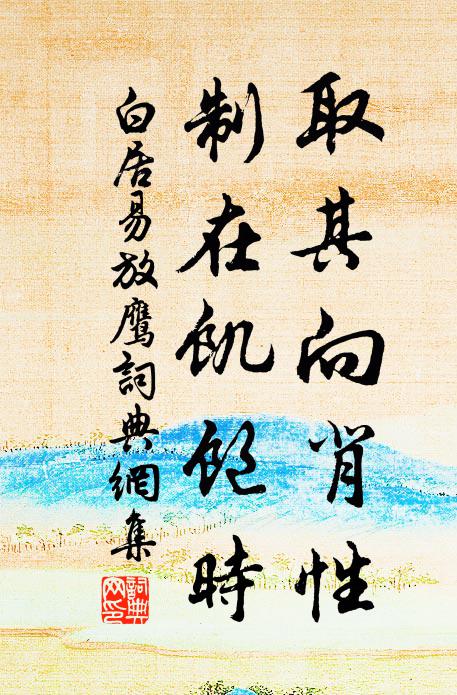 取其向背性
制在飢飽時
白居易放鷹詞典網集
詞典网印